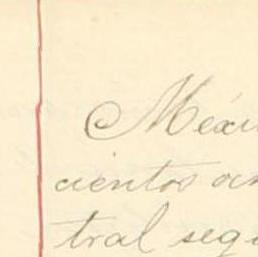 Méxi
cientos oc
tral segu